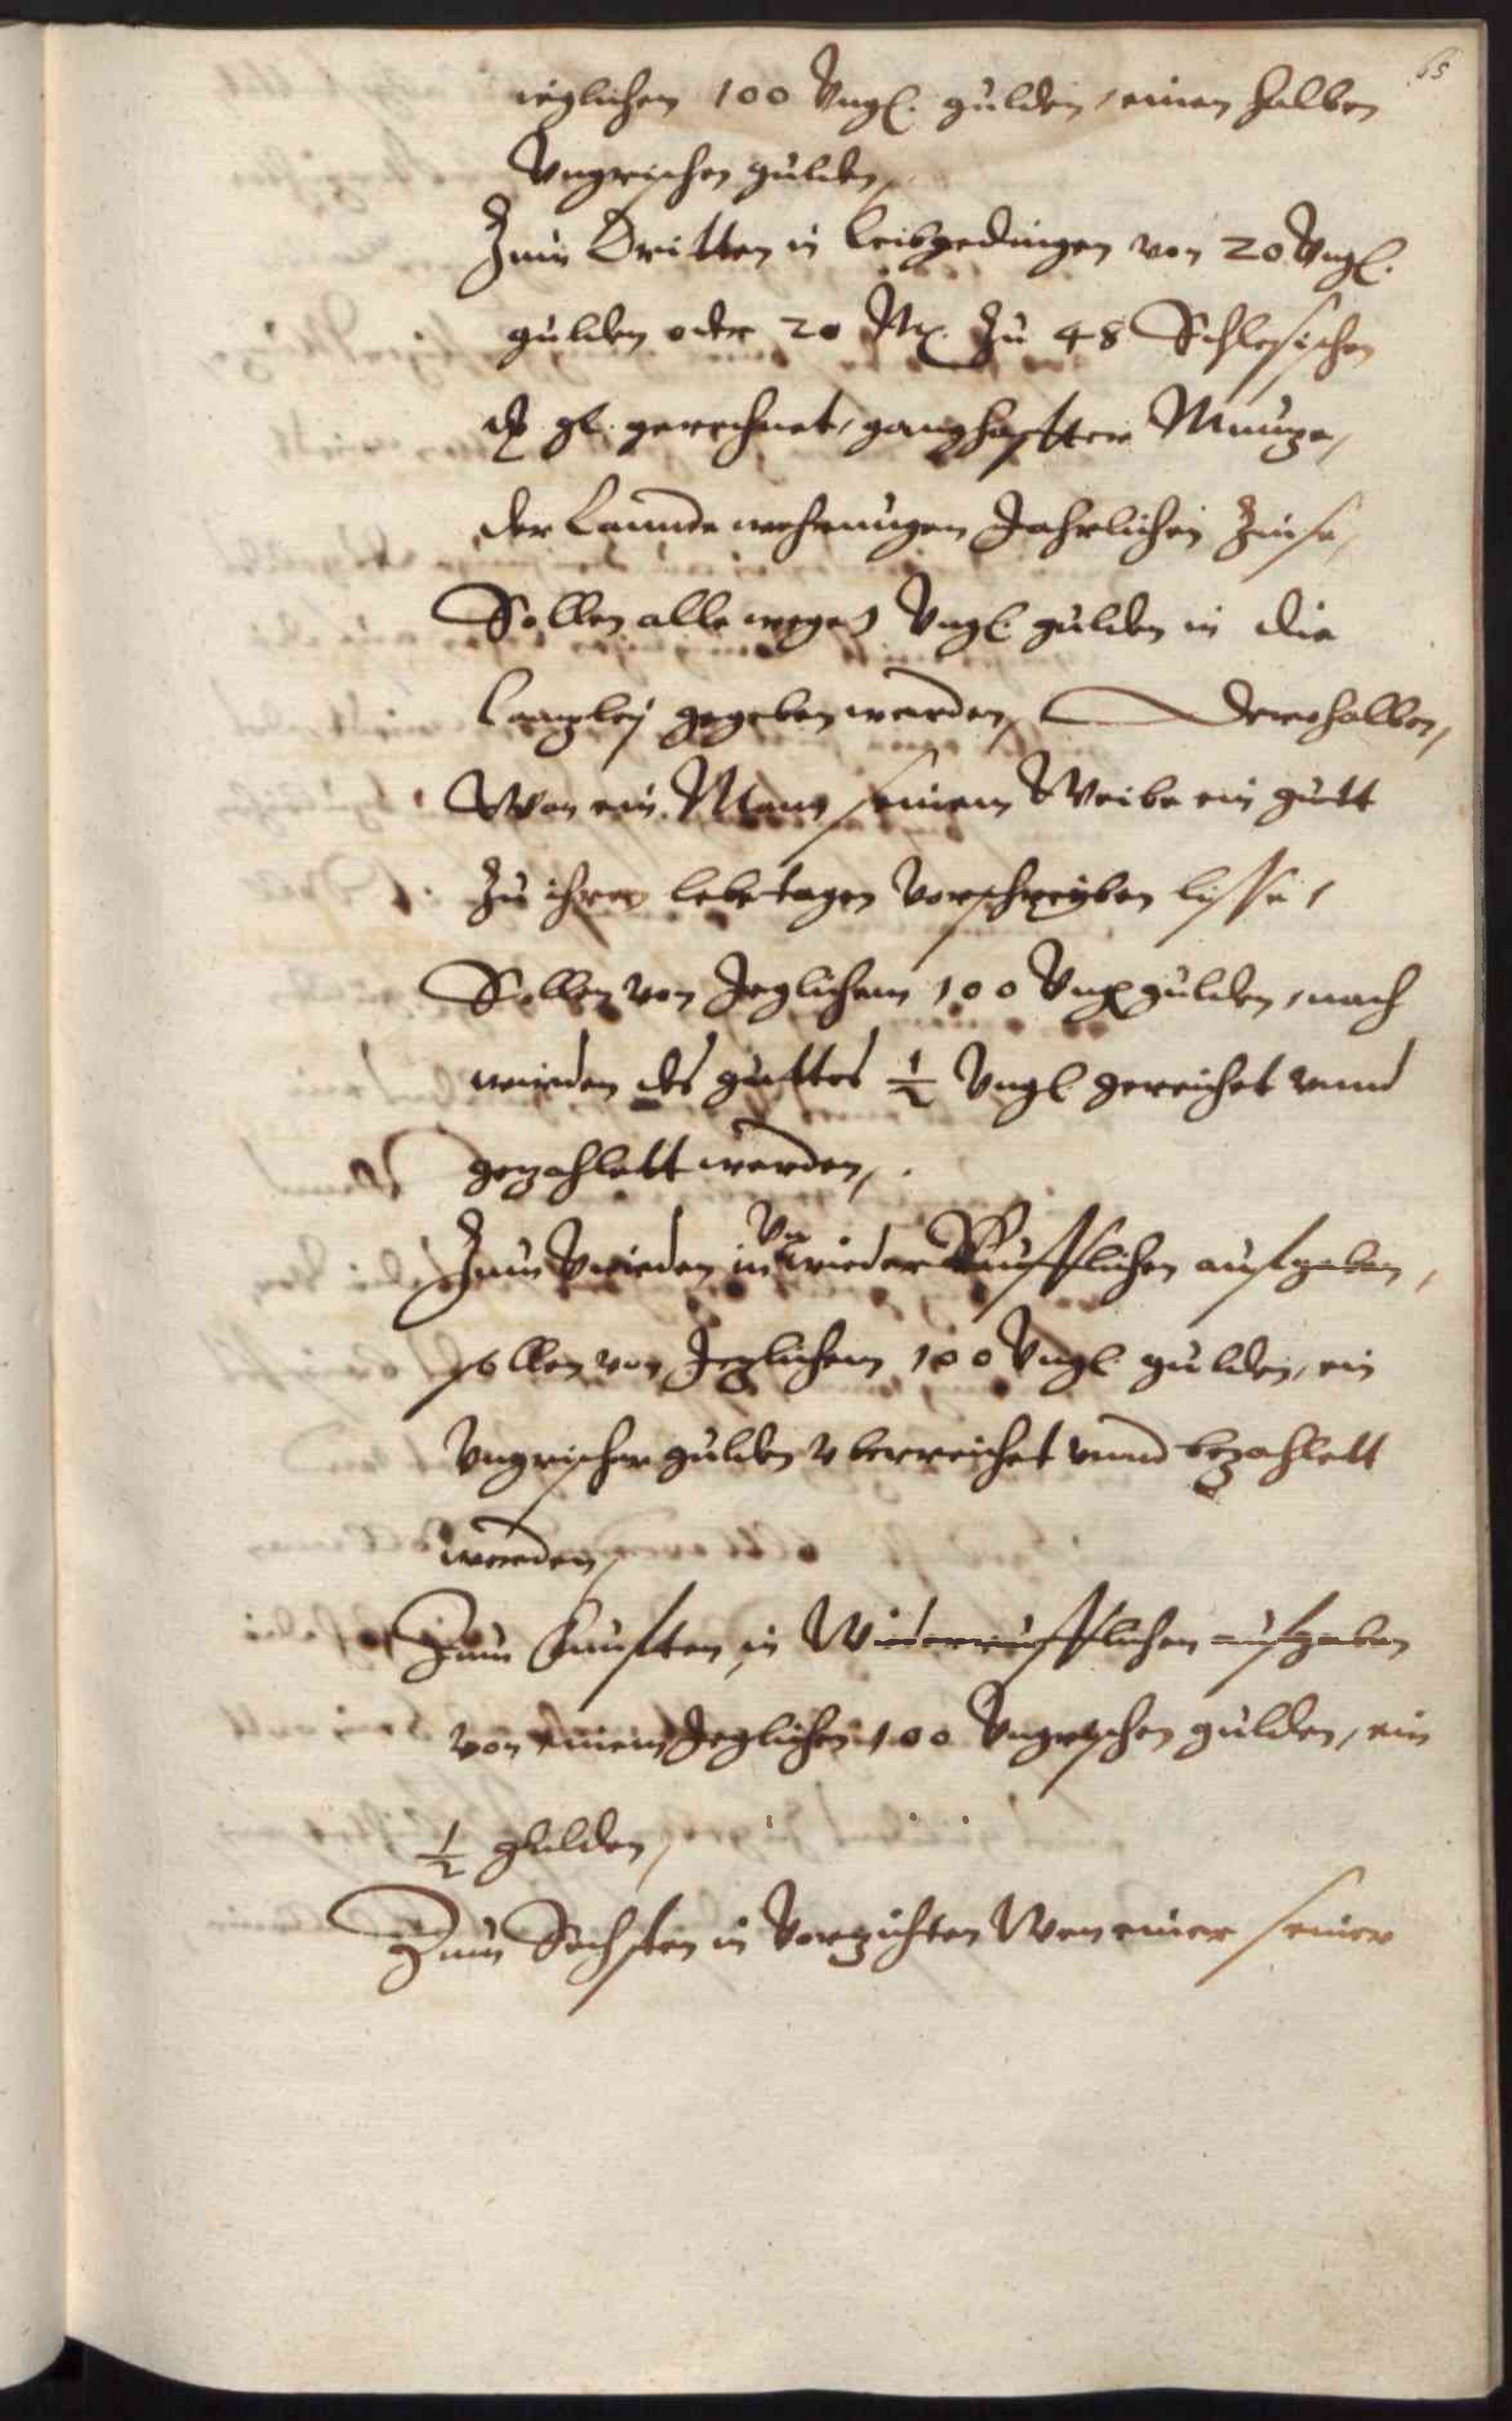 65
ieglichen 100 Vngl. gulden, einen halben
Vngrischen gulden,
Zum Dritten in Leibgedingen von 20 Vngl.
gulden oder 20 Mk. Zu 48 Schlesischen
gl. gerechnet, ganghafftter Muntze,
der Lannde wehrungen Jahrlichen Zinse,
Sollen alle wege 1 Vngl gulden in die
Cantzley gegeben werden, Derohalben,
Wan ein Man seinem Weibe ein gutt
Zu ihren lebetagen vorschreyben lisse,
Sollen von Jeglichem 100 Vngl gulden, nach
wirden des guttes ½ Vngl gereichet vnnd
gezahlett werden,
Zum Vierden in VnwiederRufflichen aufgaben,
sollen von Jeglichem 100 Vngl gulden, ein
Vngrischer gulden vberreichet vnnd bezahlett
werden,
Zum Funfften, in Widerrufflichen aufgaben
von einem Jeglichen 100 Vngrischen gulden, ein
½ gulden,
Zum Sechsten in Vorzichten Wen einer seiner